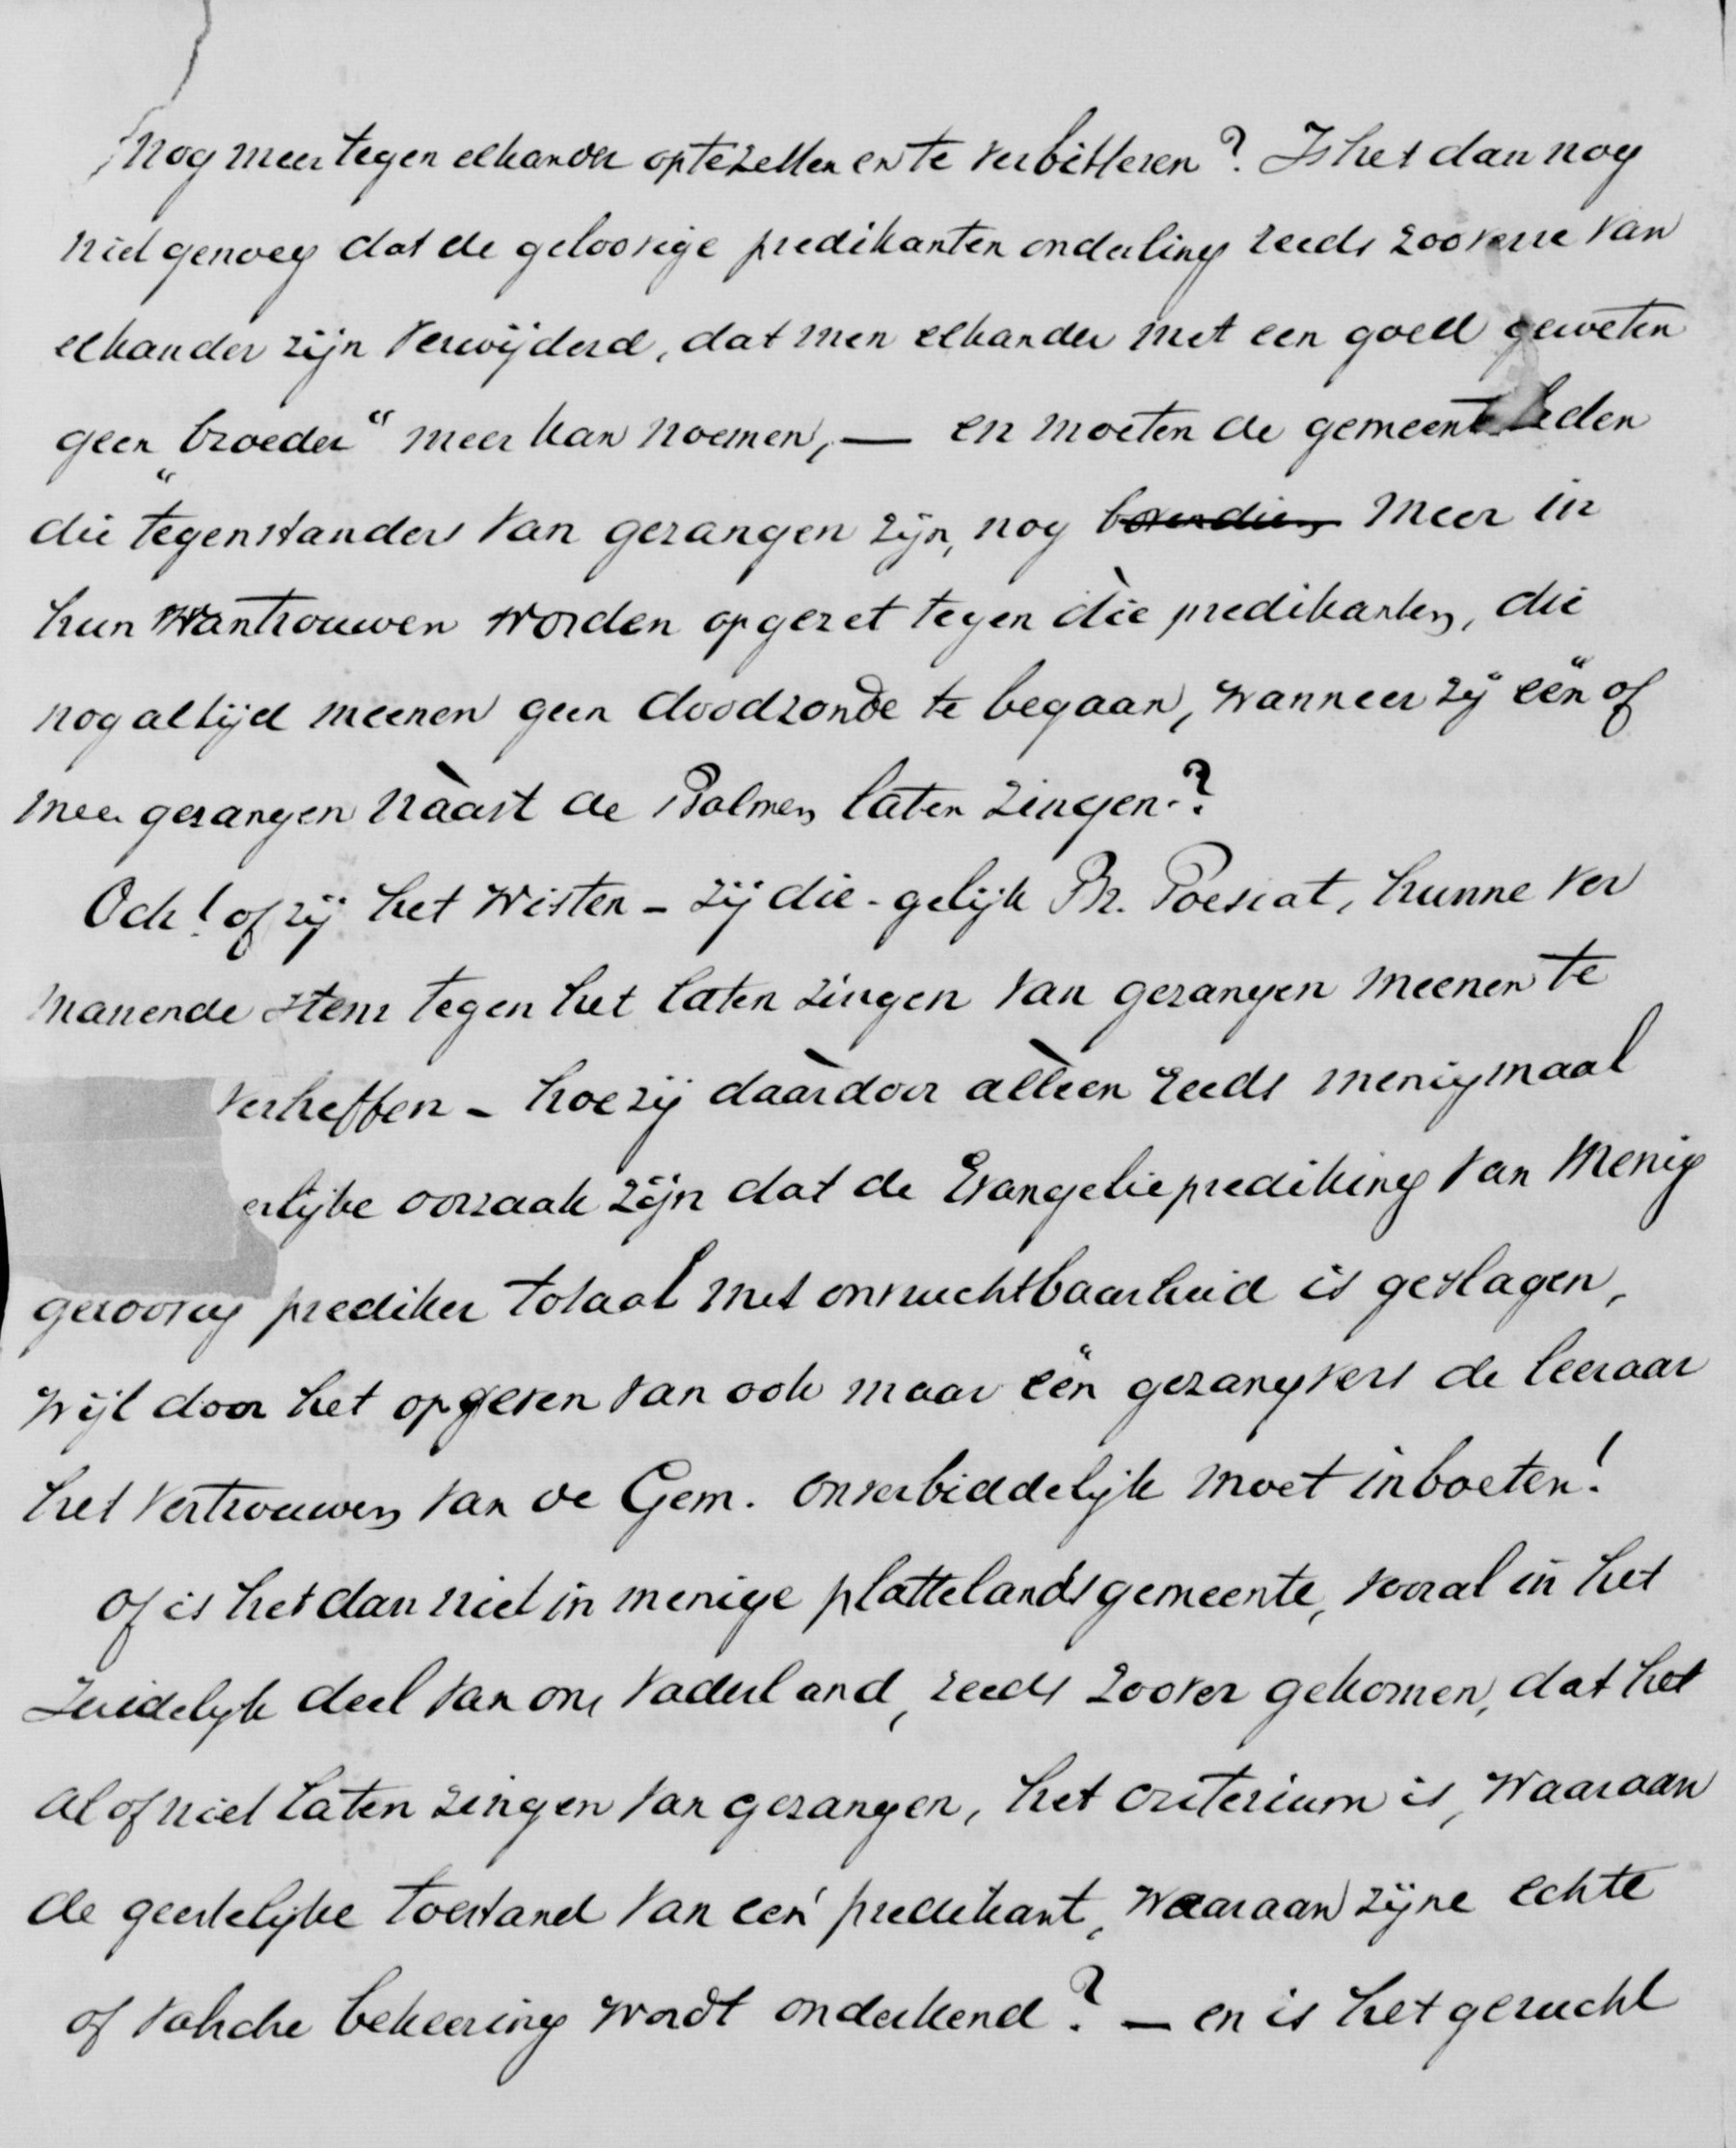 nog meer tegen elkander optezetten en te verbitteren? Is het dan nog
niet genoeg dat de geloovige predikanten onderling reeds zooverre van
elkander zijn verwijderd, dat men elkander met een goed geweten
geen „broeder“ meer kan noemen, — en moeten de gemeenteleden
die tegenstanders van gezangen zijn, nog bovendien meer in
hun wantrouwen worden opgezet tegen die predikanten, die
nog altijd meenen geen doodzonde te begaan, wanneer zij één of
meer gezangen nààst de Psalmen laten zingen?
Och! of zij het wisten – zij die - gelijk Br. Poesiat, hunne ver
manende stem tegen het laten zingen van gezangen meenen te
verheffen – hoe zij dààrdoor alléén reeds menigmaal
erlijke oorzaak zijn dat de Evangelieprediking van menig
geloovig prediker totaal met onvruchtbaarheid is geslagen,
wijl door het opgeven van ook maar één gezangvers de leeraar
het vertrouwen van de Gem. onverbiddelijk moet inboeten!
Of is het dan niet in menige plattelandsgemeente, vooral in het
Zuidelijk deel van ons vaderland, reeds zoover gekomen, dat het
al of niet laten zingen van gezangen, het criterium is, waaraan
de geestelijke toestand van een predikant, waaraan zijne echte
of valsche bekeering wordt onderkend? — en is het gerucht